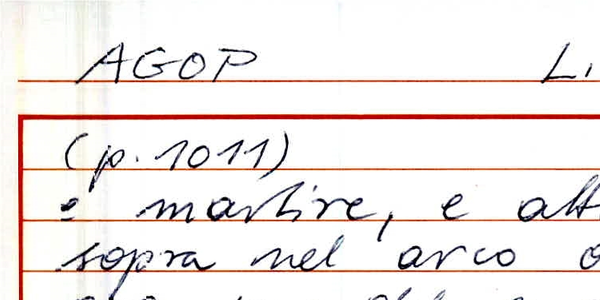 AGOP Li
(p. 1011)
e martire, e alt
sopra nel arco